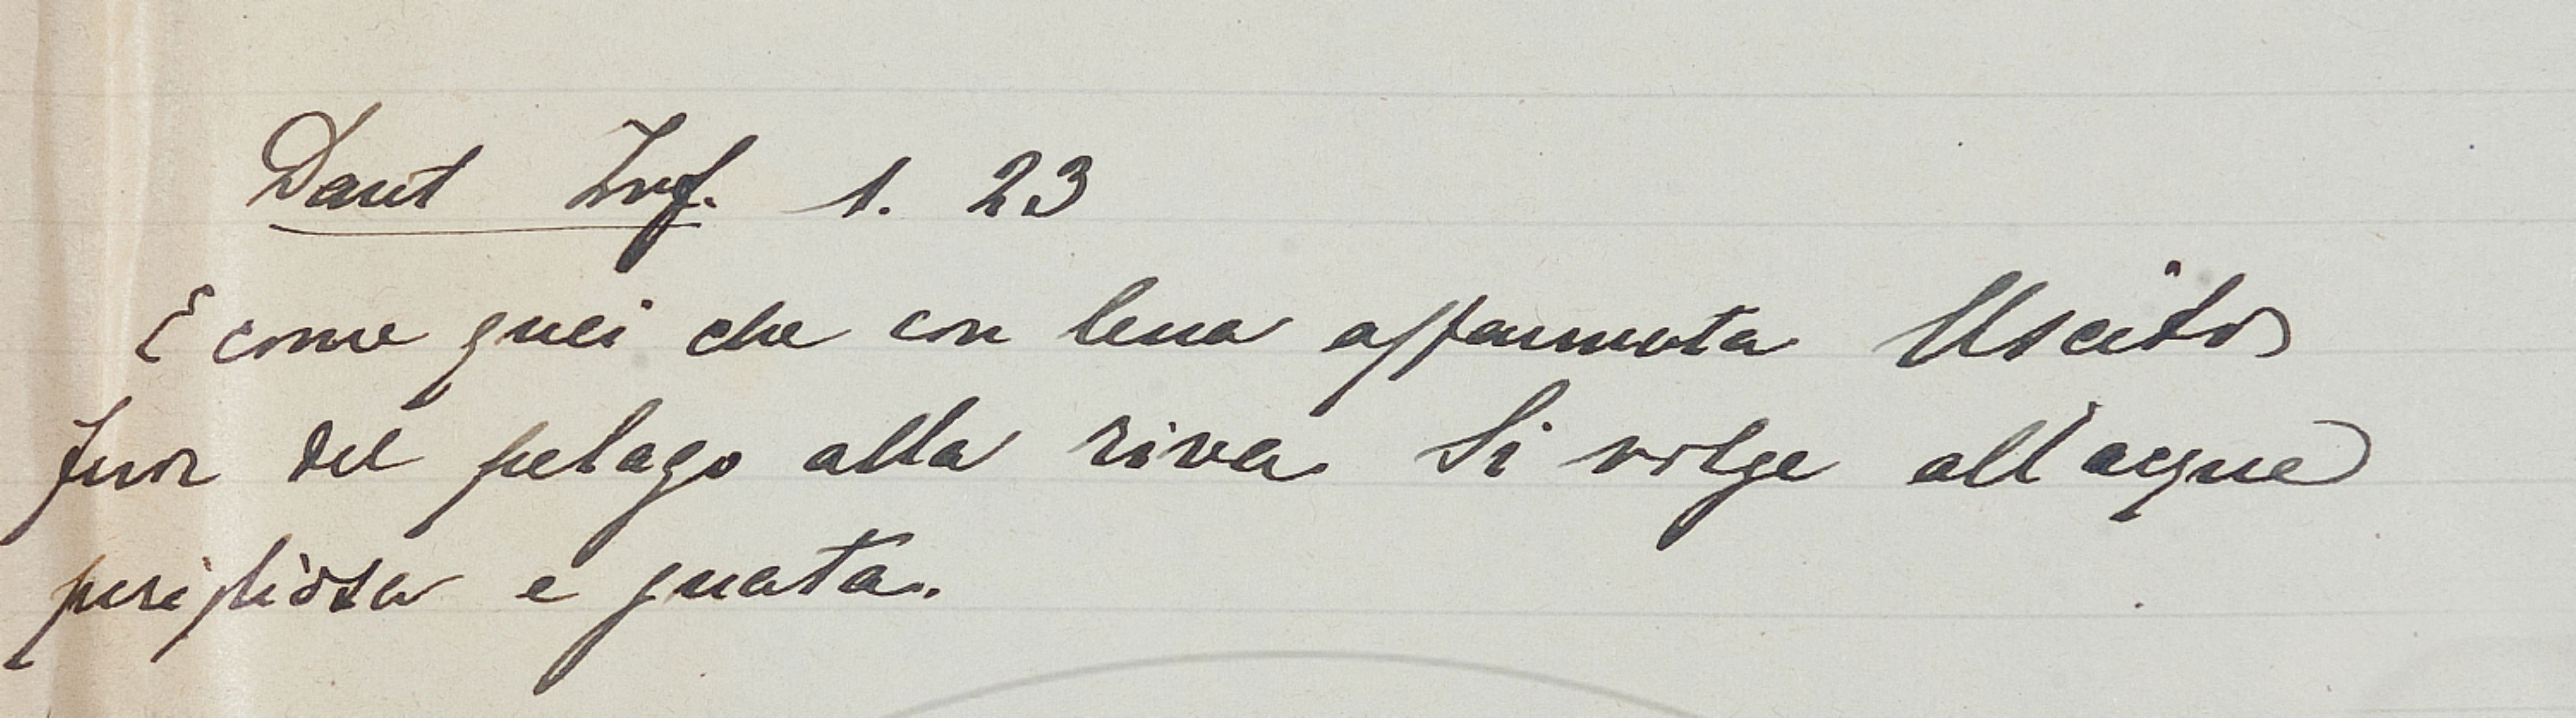 Dant Inf. 1. 23
E come quei che con lena affannata Uscito
fuor del pelago alla riva Si volge all'acqua
perigliosa e guata.